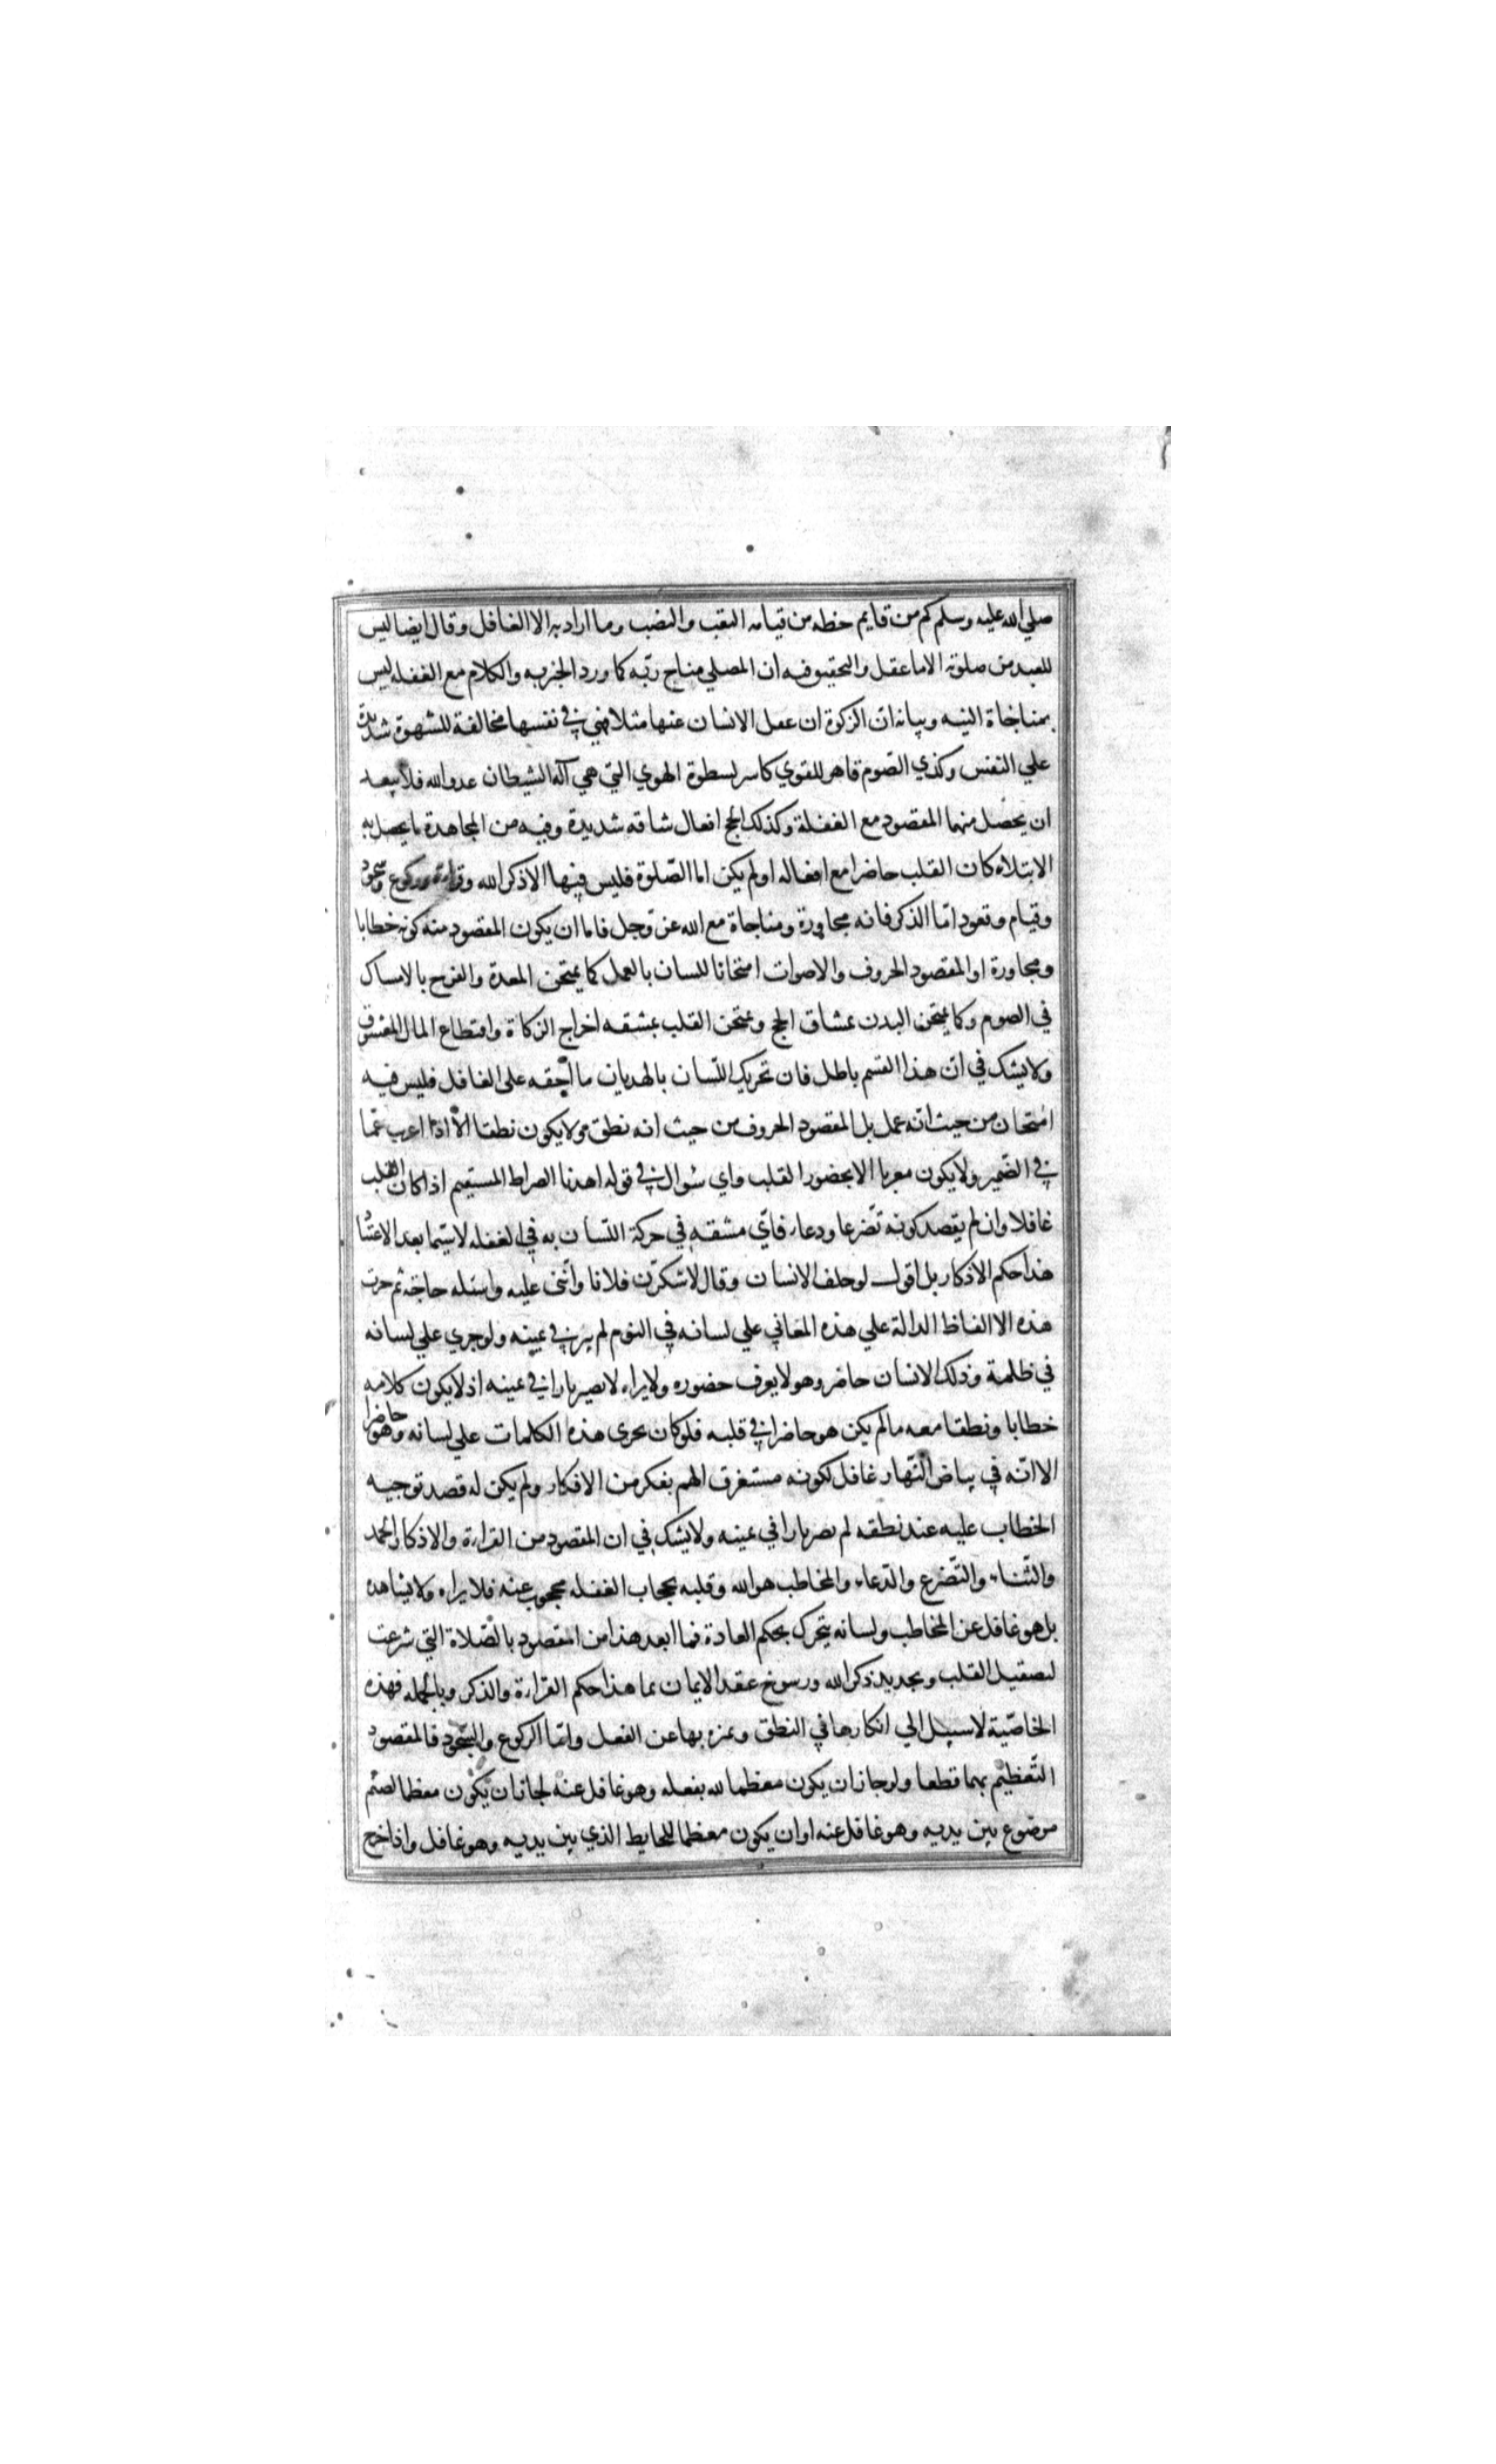 صلي الله عليه وسلم كم من قايم حظه من قيامه التعب والنصب وما اراد به الا الغافل وقال ايضا ليس
للعبد من صلوته الا ما عقل والتحقيق فيه ان المصلي مناج ربّه كما ورد الخبر به والكلام مع الغفله ليس
بمناجاة البتة وبيانه انّ الزكوة ان عفل الانسان عنها مثلا فهي في نفسها مخالفة للشهوة شديدة
علي النفس وكذي الصّوم قاهر للقوي كاسر لسطوة الهوي التي هي آلة الشيطان عدو الله فلا يبعد
ان يحصل منهما المقصود مع الغفلة وكذلك الحج افعال شاقه شديدة وفيه من المجاهدة ما يحصل به
الابتلاء كان القلب حاضرا مع افعاله او لم يكن اما الصّلوة فليس فيها الا ذكر الله وقراءة وركوع وسجود
وقيام وقعود امّا الذكر فانه مجاورة ومناجاة مع الله عز وجل فاما ان يكون المقصود منه كونه خطابا
ومجاورة او المقصود الحروف والاصوات امتحانا للسان بالعمل كما يمتحن المعدة والفرج بالامساك
في الصوم وكما يمتحن البدن بمشاق الحج ويمتحن القلب بمشقه اخراج الزكاة واقتطاع المال المعشوق
ولا يشك في انّ هذا القسم باطل فان تحريك اللّسان بالهذيان ما اخفه على الغافل فليس فيه
امتحان من حيث انّه عمل بل المقصود الحروف من حيث انه نطق ولا يكون نطقا الّا اذا اعرب عمّا
في الضّمير ولا يكون معربا الا بحضور القلب واي سُوال في قوله اهدنا الصراط المستقيم اذا كان القلب
غافلا وان لم يقصد كونه تضّرعا ودعاء فاّي مشقه في حركة اللّسان به في الغفله لا سيّما بعد الاعتيا
هذا حكم الاذكار بل اقول لو حلف الانسان وقال لاشكرّن فلانا واثني عليه واسئله حاجة ثم جرت
هذه الا الفاظ الدالة علي هذه المعاني علي لسانه في النوم لم يبر في يمينه ولو جري علي لسانه
في ظلمة وذلك الانسان حاضر وهو لا يعرف حضوره ولا يراه لا يصير بارا في يمينه اذ لا يكون كلامه
خطابا ونطقا معه ما لم يكن هو حاضرا في قلبه فلو كان يجرى هذه الكلمات علي لسانه وهو حاضر
الا انّه في بياض النّهار غافل لكونه مستغرق الهم بفكر من الافكار ولم يكن له قصد توجيه
الخطاب عليه عند نطقه لم يصر بارا في يمينه ولا يشك في ان المقصود من القراءة والاذكار الحمد
والثّناء والتّضرع والدّعاء والمخاطب هو الله وقلبه بحجاب الغفله محجوب عنه فلا يراه ولا يشاهده
بل هو غافل عن المخاطب ولسانه يتحرك بحكم العادة فما ابعد هذا من المقصود بالصّلاة التي شرعت
لتصقيل القلب وتجديد ذكر الله ورسوخ عقد الايمان بما هذا حكم القراءة والذكر وبالجمله فهذه
الخاصّية لا سبيل الي انكارها في النطق وتمزه بها عن الفعل وامّا الركوع والسّجود فالمقصود
التّعظيم بهما قطعا ولو جاز ان يكون معظما لله بفعله وهو غافل عنه لجاز ان يكون معظما لصنم
موضوع بين يديه وهو غافل عنه او ان يكون معظما للحايط الذي بين يديه وهو غافل واذا خرج